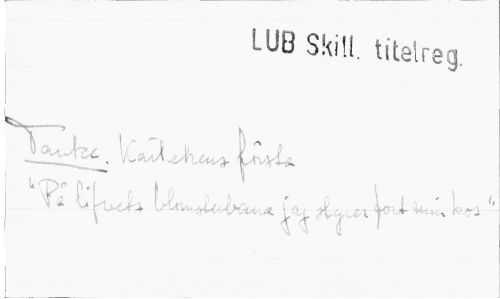 LUB Skill. titelreg.
Kärlekens första
"På lifvets blomsterbana jag styrer fort min kos"